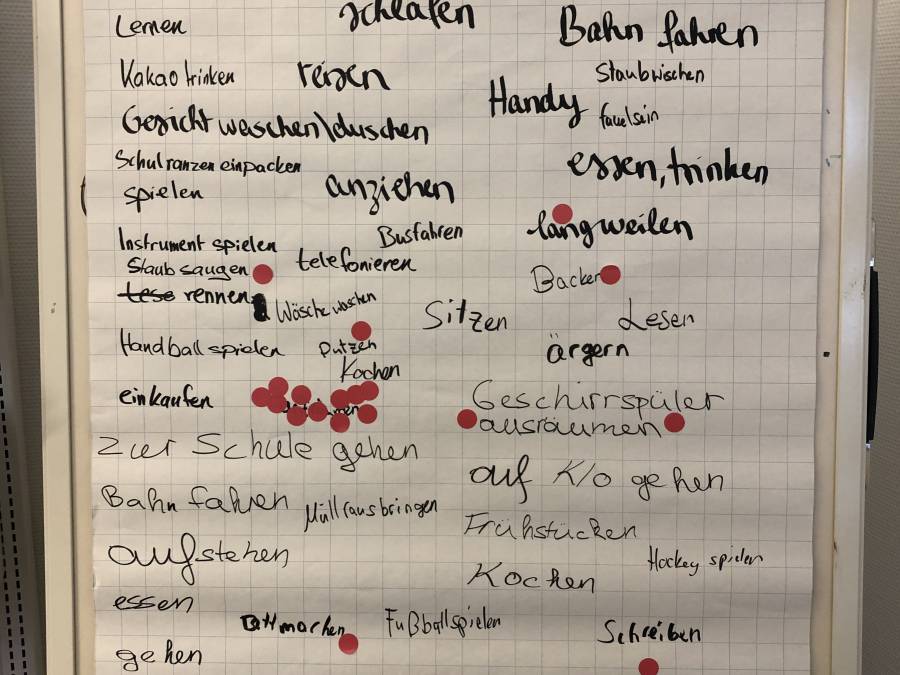 schlafen
Lernen
Bahn fahren
Kakao trinken
reisen
Staubwischen
Handy
faulsein
Gesicht waschen\duschen
Schulranzen einpacken
essen, trinken
spielen
anziehen
langweilen
Busfahren
Instrument spielen
telefonieren
Staubsaugen
Backen
rennen
Wäsche waschen
Sitzen
Lesen
Handball spielen
putzen
ärgern
Kochen
einkaufen
Geschirrspüler
ausräumen
zur Schule gehen
auf Klo gehen
Bahn fahren
Müll rausbringen
Frühstücken
aufstehen
Hockey spielen
Kochen
essen
machen
Fußballspielen
Schreiben
gehen